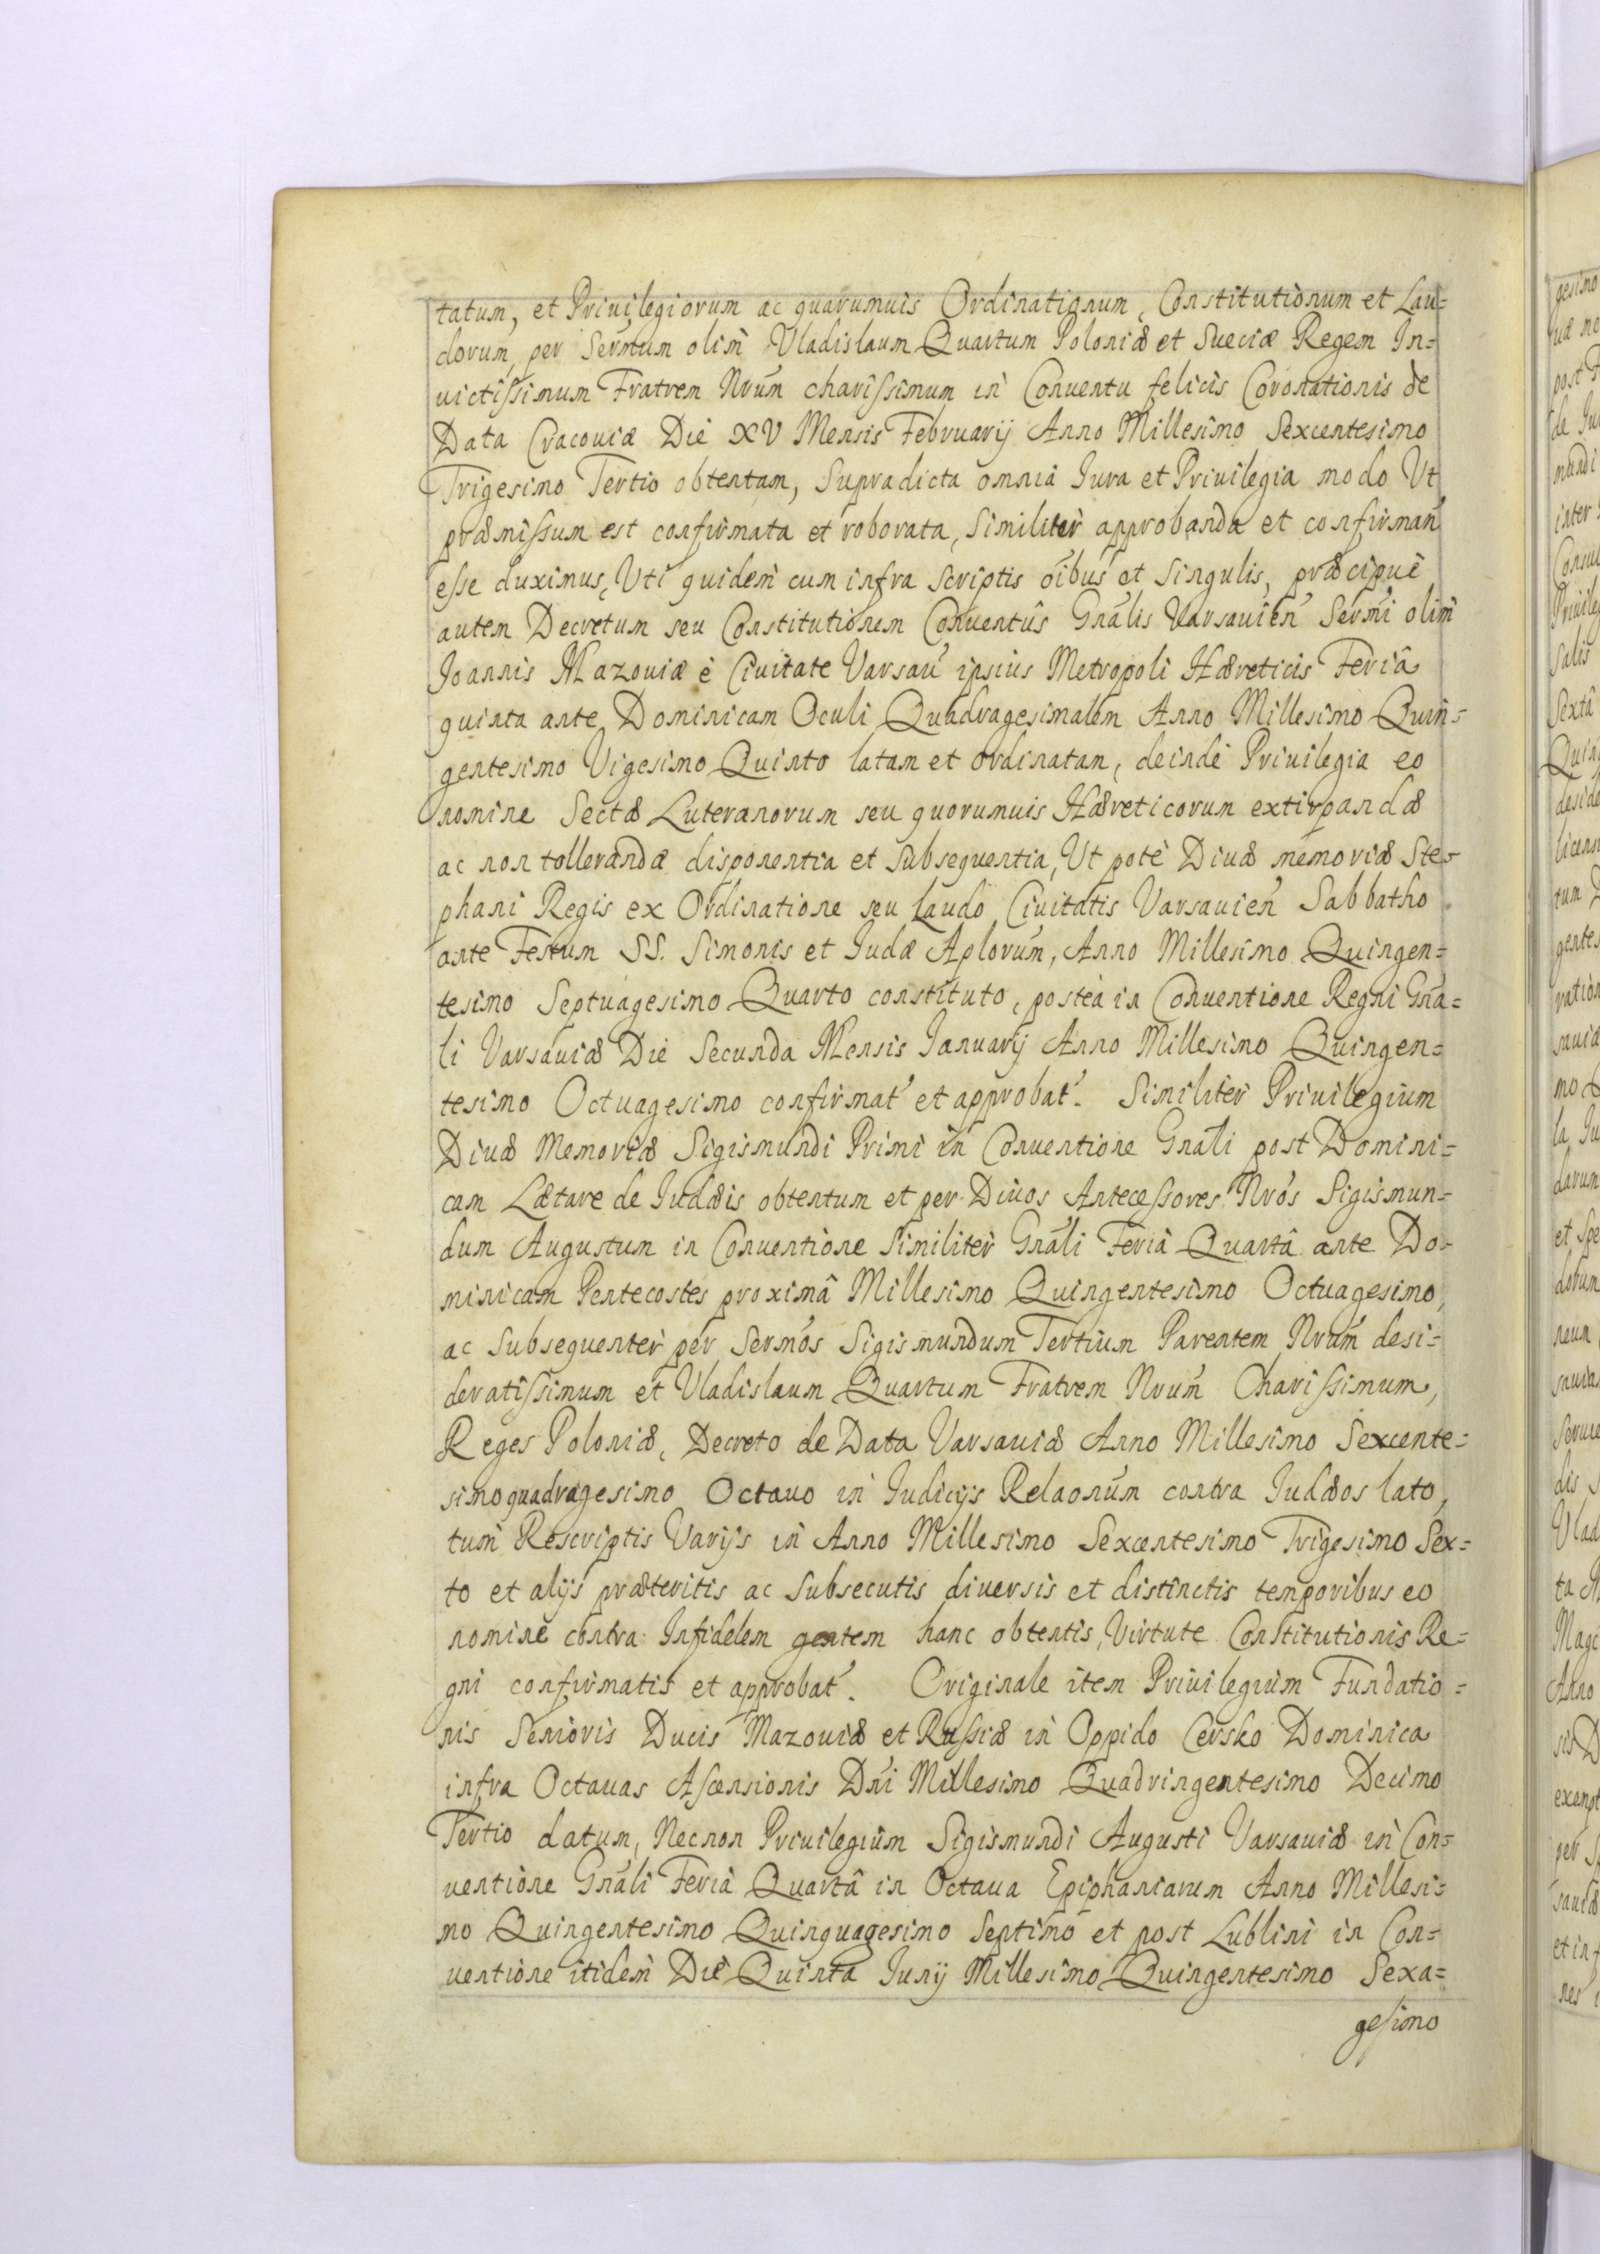 tatum, et Priuilegiorum ac quarumuis Ordinationum, Constitutionum et Lau=
dorum, per Sermum olim Vladislaum Quartum Poloniæ et Sueciæ Regem In=
uictissimum Fratrem Nrum charissimum in Conuentu felicis Coronationis de
Data Cracouiæ Die XV Mensis Februarij Anno Millesimo Sexcentesimo
Trigesimo Tertio obtentam, Supradicta omnia Iura et Priuilegia modo Ut
præmissum est confirmata et roborata, Similiter approbanda et confirman
esse duximus, Uti quidem cum infra Scriptis oibus et Singulis, præcipue
autem Decretum seu Constitutionem Conuentûs Gnalis Varsauien Sermi olim
Joannis Mazouiæ è Ciuitate Varsau ipsius Metropoli Hæreticis Feriâ
quinta ante Dominicam Oculi Quadragesimalem Anno Millesimo Quin=
gentesimo Vigesimo Quinto latam et ordinatam, deinde Priuilegia eo
nomine Sectæ Luteranorum seu quorumuis Hæreticorum extirpandæ
ac non tollerandæ disponentia et Subsequentia, Ut pote Diuæ memoriæ Ste=
phani Regis ex Ordinatione seu Laudo Ciuitatis Varsauien Sabbatho
ante Festum SS. Simonis et Iudæ Aplorum, Anno Millesimo Quingen=
tesimo Septuagesimo Quarto constituto, postea in Conuentione Regni Gna=
li Varsauiæ Die Secunda Mensis Ianuarij Anno Millesimo Quingen=
tesimo Octuagesimo confirmat et approbat. Similiter Priuilegium
Diuæ Memoriæ Sigismundi Primi in Conuentione Gnali post Domini=
cam Lætare de Iudæis obtentum et per Diuos Antecessores Nros Sigismun=
dum Augustum in Conuentione Similiter Gnali Feriâ Quartâ ante Do=
minicam Pentecostes proximâ Millesimo Quingentesimo Octuagesimo,
ac Subsequenter per Sermos Sigismundum Tertium Parentem Nrum desi=
deratissimum et Vladislaum Quartum Fratrem Nrum Charissimum,
Reges Poloniæ, Decreto de Data Varsauiæ Anno Millesimo Sexcente=
simoquadragesimo Octauo in Iudicijs Relaonum contra Iudæos lato,
tum Rescriptis Varijs in Anno Millesimo Sexcentesimo Trigesimo Sex=
to et alijs præteritis ac Subsecutis diuersis et distinctis temporibus eo
nomine contra Infidelem gentem hanc obtentis, Virtute Constitutionis Re=
gni confirmatis et approbat. Originale item Priuilegium Fundatio=
nis Senioris Ducis Mazouiæ et Russiæ in Oppido Cersko Dominica
infra Octauas Ascensionis Dni Millesimo Quadringentesimo Decimo
Tertio datum, Necnon Priuilegium Sigismundi Augusti Varsauiæ in Con=
uentione Gnali Feriâ Quartâ in Octaua Epiphaniarum Anno Millesi=
mo Quingentesimo Quinquagesimo Septimo et post Lublini in Con=
uentione itidem Die Quinta Iunij Millesimo Quingentesimo Sexa=
gesimo